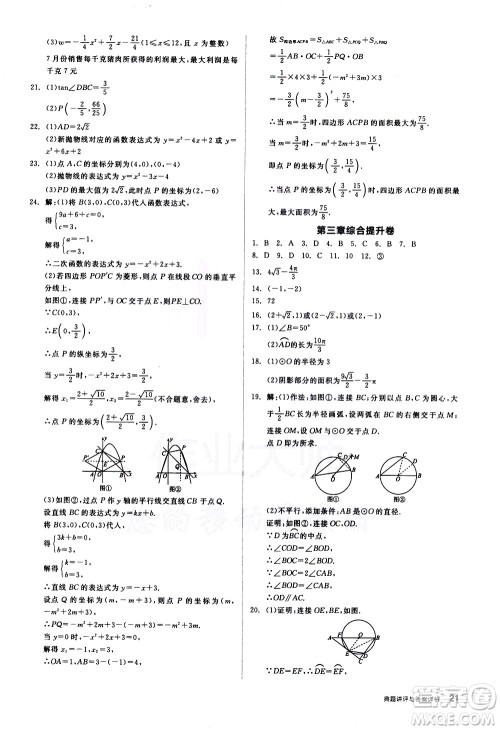 (3)w=-1/4x²+1/2x+21/4(1≤x≤6,x为整数)
7月份销售每千克猪肉所获得的利润最大,最大利润是每千克7元
21. (1)tan∠DBC=3/5
(2)P(-2/5,66/25)
22. (1)AD=2√2
(2)新抛物线对应的函数表达式为y=x²-4x+2
或y=x²+6x+2
23. (1)点A,C的坐标分别为(4,0),(0,-4)
(2)抛物线的表达式为y=x²-3x-4
(3)PD的最大值为2√2,此时点P(2,-6)
24. 解:(1)将B(3,0),C(0,3)代入函数表达式,
得{9a+6+c=0,
c=3,
解得{a=-1,
c=3,
∴二次函数的表达式为y=-x²+2x+3
(2)若四边形POP'C为菱形,则点P在线段CO的垂直平分线上.
如图①,连接PP',与OC交于点E.
∵C(0,3),
∴E(0,3/2),
∴点P的纵坐标为3/2.
当y=3/2时,-x²+2x+3=3/2,
解得x₁=(2+√10)/2,x₂=(2-√10)/2(不合题意,舍去),
∴点P的坐标为((2+√10)/2,3/2)
图① 图②
(3)如图②,过点P作y轴的平行线交直线BC于点Q.
设直线BC的表达式为y=kx+b.
将B(3,0),C(0,3)代入,
得{3k+b=0,
b=3,
解得{k=-1,
b=3,
∴直线BC的表达式为y=-x+3.
设点P的坐标为(m,-m²+2m+3),则点Q的坐标为(m,-m+3),
∴PQ=-m²+2m+3-(-m+3)=-m²+3m.
当y=0时,-x²+2x+3=0,
解得x₁=-1,x₂=3,
∴OA=1,AB=4,
故S四边形ACPB=S△ABC+S△CPB
=1/2AB·OC+1/2PQ·OB
=1/2×4×3+1/2(-m²+3m)×3
=-3/2(m-3/2)²+75/8,
∴当m=3/2时,四边形ACPB的面积最大.
当m=3/2时,-m²+2m+3=15/4,
即点P的坐标为(3/2,15/4).
∴当点P的坐标为(3/2,15/4)时,四边形ACPB的面积最大,最大值为75/8
第三章综合提升卷
1. B 2. A 3. D 4. C 5. A 6. C 7. B
8. D 9. D 10. C 11. D 12. ③
13. 4√3-4π/3
14. (-1,-2)
15. 72
16. (2+√2,1)或(2-√2,1)
17. (1)∠B=50°
(2)AD的长度为10π/3
18. (1)⊙O的半径为3
(2)阴影部分的面积为9√3/2-3π/2
19. 解:(1)作法:分别以点A,点B为圆心,大于1/2BC长为半径画弧,设两弧在BC的右侧交于点D.
点D即为所求.
(2)不平行,添加条件:AB是⊙O的直径.
证明,如图,连接OC,OD,BC.
∵D为BC的中点,
∴∠COD=∠BOD,
∴∠BOC=2∠BOD.
∵∠BOC=2∠CAB,
∴∠BOD=∠CAB,
∴OD∥AC
20. (1)证明:连接OE,BE,如图.
∵DE=EF,∴DE=EF,
商题讲评与答案详解 21